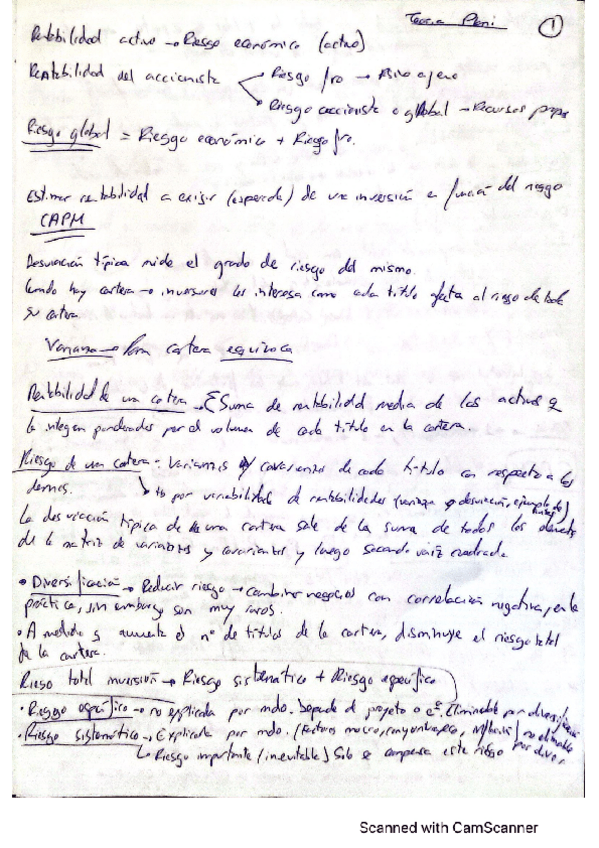 Teoria Plani 1
Rentabilidad activo → Riesgo económico (activo)
Rentabilidad del accionista
Riesgo fro → Pasivo ajeno
Riesgo accionista o global → Recursos propios
Riesgo global = Riesgo económico + Riesgo fro.
Estimar rentabilidad a exigir (esperada) de una inversión en función del riesgo
CAPM
Desviación típica mide el grado de riesgo del mismo.
Cuando hay cartera → inversores les interesa como cada título afecta al riesgo de toda
su cartera
Varianza → Para cartera equívoca
Rentabilidad de una cartera → Σ Suma de rentabilidad media de los activos q
la integran ponderados por el volumen de cada título en la cartera.
Riesgo de una cartera = Varianzas y covarianzas de cada título con respecto a los
demás.
↳ to por variabilidad de rentabilidades (varianza y desviación,
La desviación típica de una cartera sale de la suma de todos los
de la matriz de varianzas y covarianzas y luego sacando raíz cuadrada.
• Diversificación → Reducir riesgo → combinar negocios con correlación negativa, en la
práctica, sin embargo son muy raros.
• A medida q aumenta el nº de títulos de la cartera, disminuye el riesgo total
de la cartera.
Riesgo total inversión → Riesgo sistemático + Riesgo específico
• Riesgo específico → no explicada por mdo. Depende de proyecto o eª. Eliminable por diversificación
• Riesgo sistemático → Explicada por mdo. (factores macro, no eliminable por diver.
↳ Riesgo importante (inevitable) Solo se compensa este riesgo
Scanned with CamScanner